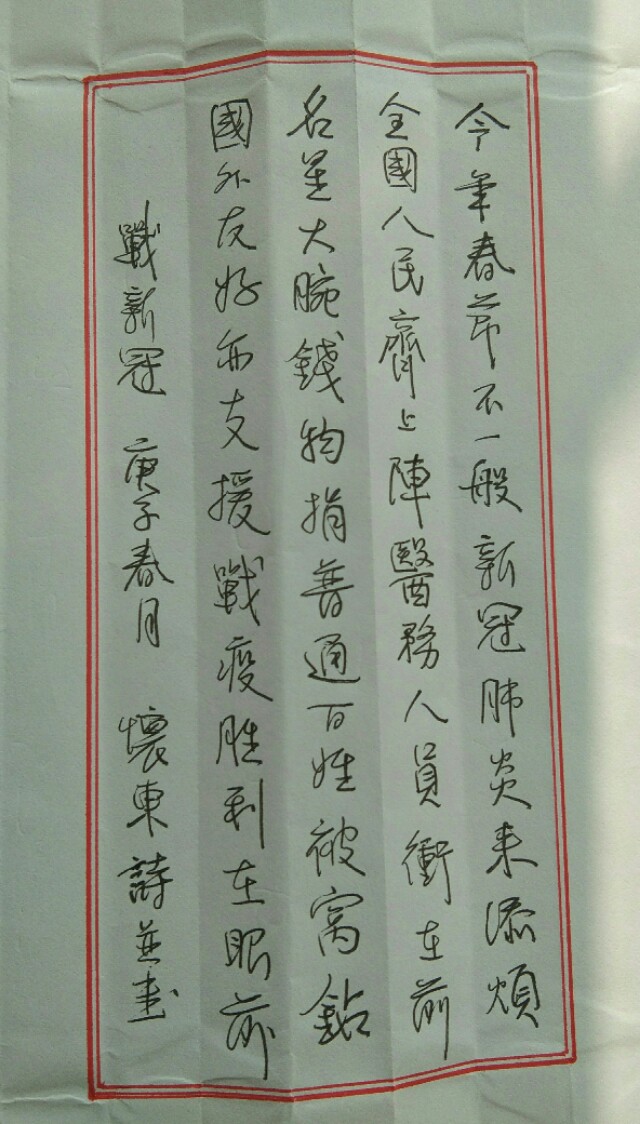 今年春节不一般新冠肺炎来添煩
全國人民齊上陣醫務人員衝在前
名星大腕錢物捐普通百姓被窝鈷
國外友好亦支援戰疫胜利在眼前
戰新冠 庚子春月 懷東詩並书